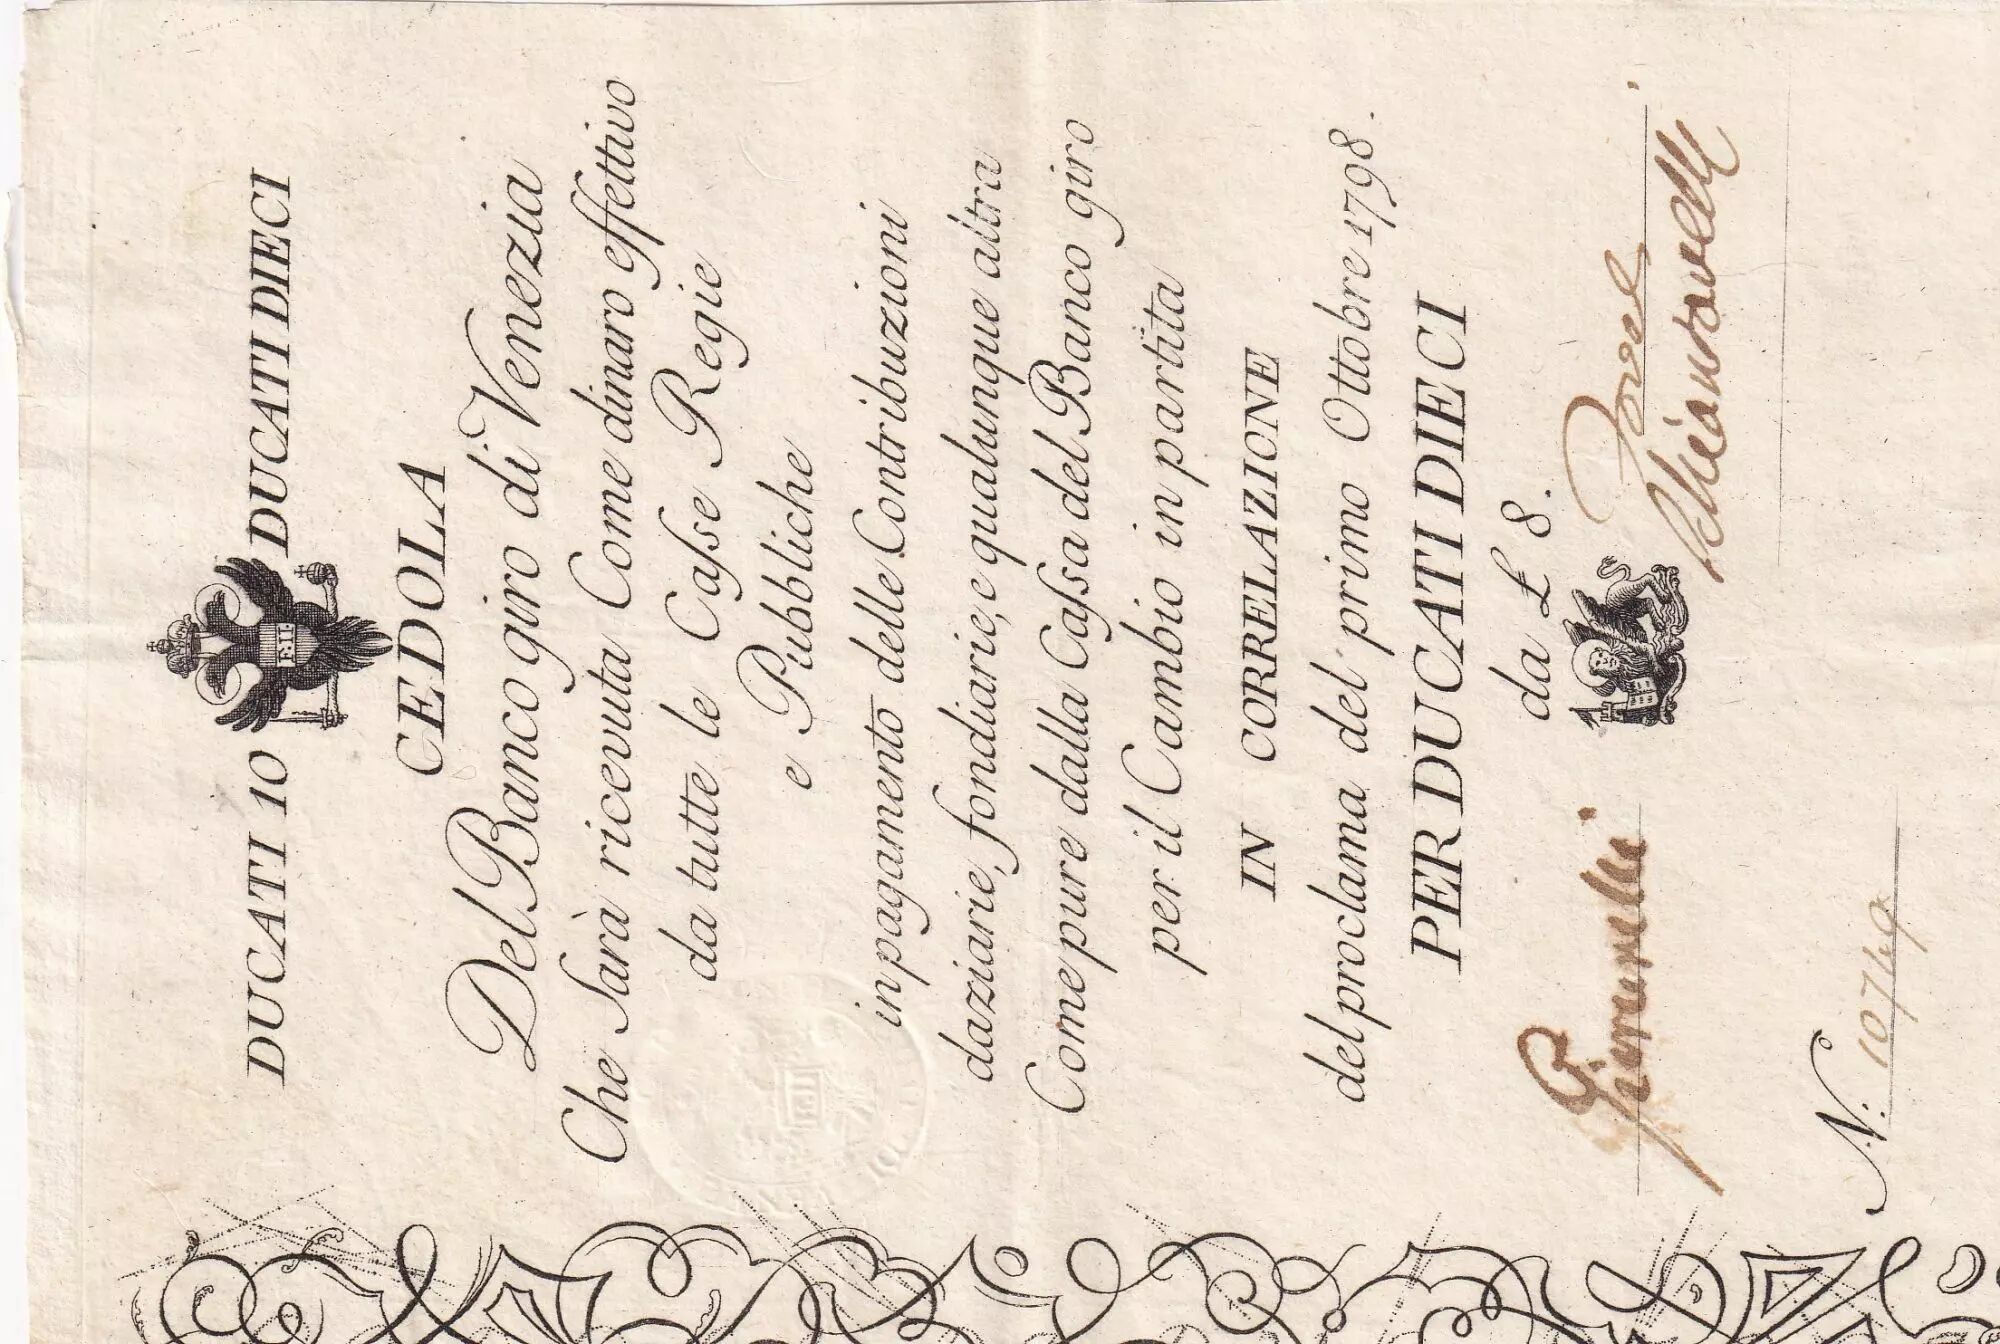 DUCATI 10 DUCATI DIECI
F. II.
CEDOLA
Del Banco giro di Venezia
Che Sarà ricevuta Come dinaro effettivo
da tutte le Caſse Regie
e Pubbliche
in pagamento delle Contribuzioni
daziarie, fondiarie, e qualunque altra
Come pure dalla Caſsa del Banco giro
per il Cambio in partita
IN CORRELAZIONE
del proclama del primo Ottobre 1798.
PER DUCATI DIECI
da £ 8.
N: 10749